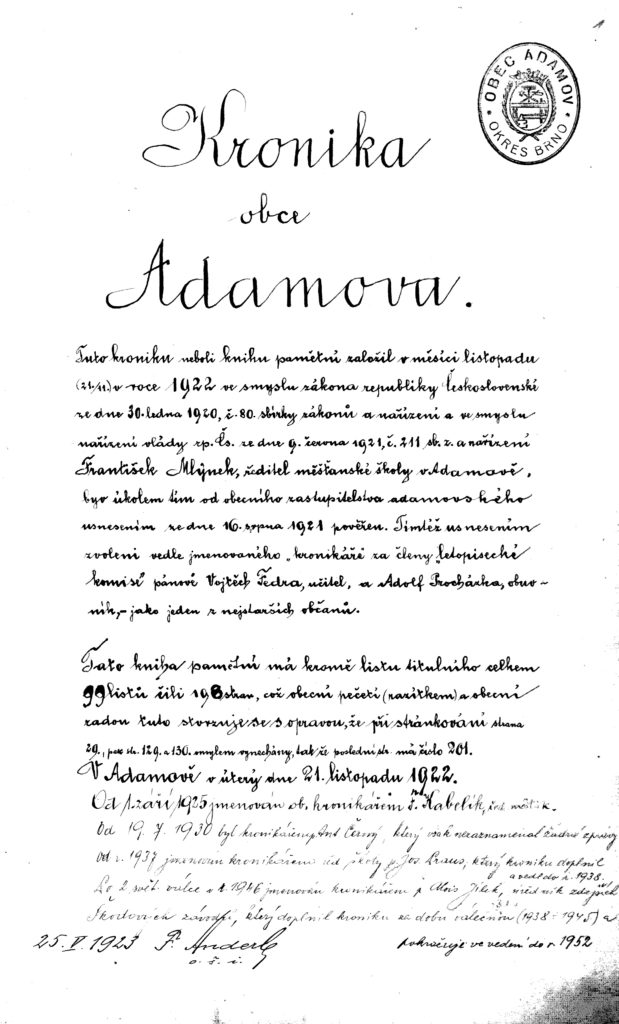 1
OBEC ADAMOV
OKRES BRNO
Kronika
obce
Adamova.
Tuto kroniku neboli knihu pamětní založil v měsíci listopadu
(21/11.) v roce 1922 ve smyslu zákona republiky Československé
ze dne 30. ledna 1920, č. 80. sbírky zákonů a nařízení a ve smyslu
nařízení vlády rp. Čs. ze dne 9. června 1921, č. 211 sb. z. a nařízení
František Mlýnek, ředitel měšťanské školy v Adamově,
byv úkolem tím od obecního zastupitelstva adamovského
usnesením ze dne 16. srpna 1921 pověřen. Tímtéž usnesením
zvoleni vedle jmenovaného „kronikáře" za členy „letopisecké
komise" pánové Vojtěch Fedra, učitel, a Adolf Procházka, obuv-
ník, - jako jeden z nejstarších občanů.
Tato kniha pamětní má kromě listu titulního celkem
99 listů čili 198 stran, což obecní pečetí (razítkem) a obecní
radou tuto stvrzuje se s opravou, že při stránkování strana
29., pak str. 129. a 130. omylem vynechány, takže poslední str. má číslo 201.
V Adamově v úterý dne 21. listopadu 1922.
Od 1. září 1925 jmenován ob. kronikářem Kabelík,
Od 19. 7. 1930 byl kronikářem Ant. Černý, který však nezaznamenal žádné zprávy
Od r. 1937 jmenován kronikářem říd. školy p. Jos Kraus, který kroniku doplnil
a vedl do r. 1938.
Po 2. svět. válce v r. 1946 jmenován kronikářem p. Alois Jílek, úředník zdejších
Škodových závodů, který doplnil kroniku za dobu válečnou (1938 - 1945) a
25. V. 1923 F. Anderle
pokračuje ve vedení do r. 1952
o. š. i.